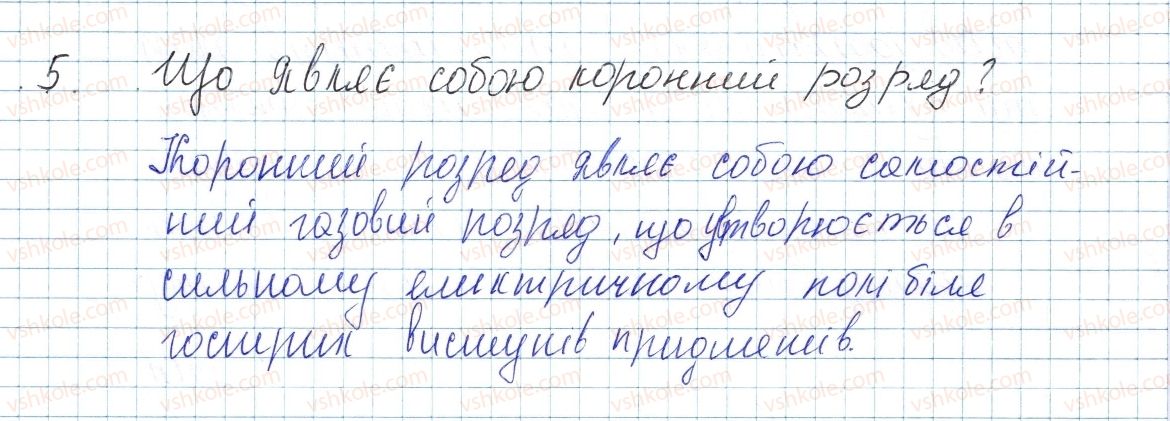 5. Що являє собою коронний розряд?
Коронний розряд являє собою самостій-
ний газовий розряд, що утворюється в
сильному електричному полі біля
гострих виступів предметів.